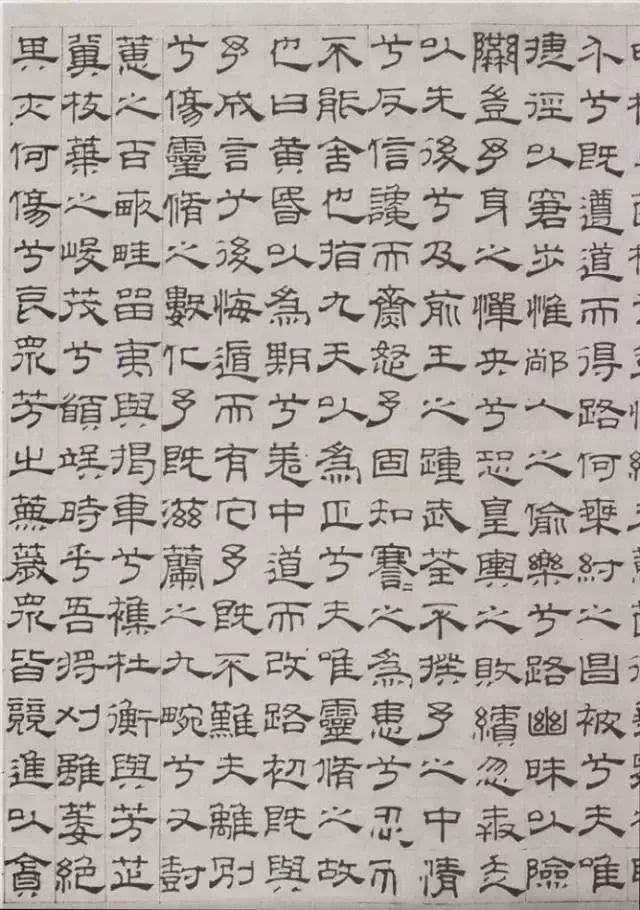 介兮既遵道而得路何桀紂之昌被兮夫唯
捷徑以窘步惟人之偷樂兮路幽昧以險
隘豈予身之憚央兮恐皇輿之敗績忽奔走
以先後兮及前王之踵武荃不揆予之中情
兮反信讒而齌怒予固知謇〻之為患兮忍而
不能舍也指九天以為正兮夫唯靈脩之故
也曰黃昏以為期兮羌中道而改路初既與
予成言兮後悔遁而有它予既不難夫離別
兮傷靈脩之數化予既滋蘭之九畹兮又樹
蕙之百畝畦留夷與揭車兮雜杜衡與芳芷
冀枝葉之峻茂兮願竢時乎吾將刈雖萎絕
其亦何傷兮哀眾芳之蕪薉眾皆競進以貪